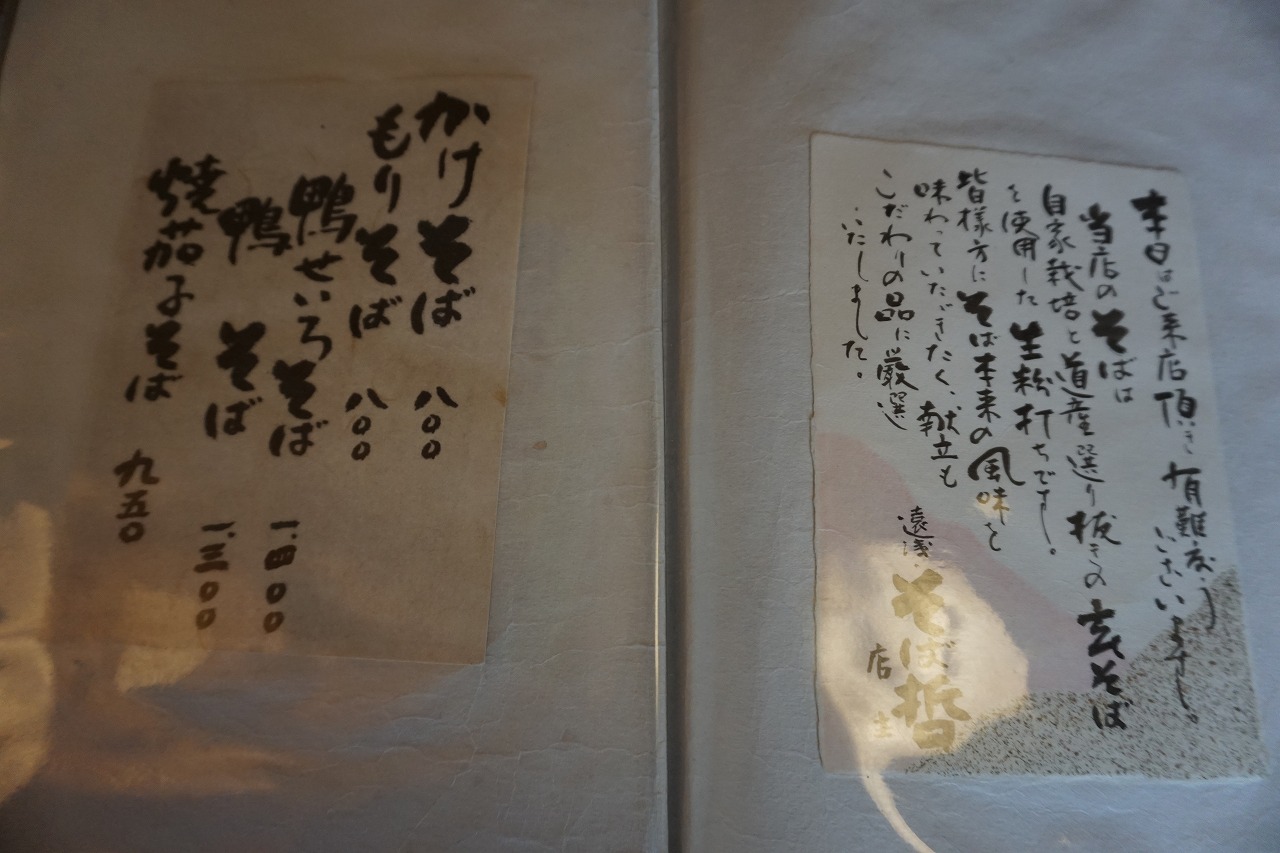 本日はご来店頂き有難うございます。
当店のそばは
自家栽培と道産選り抜きの玄そば
を使用した生粉打ちです。
皆様方にそば本来の風味を
味わっていただきたく、献立も
こだわりの品に厳選
いたしました。
遠浅 そば哲
店主
かけそば 八〇〇
もりそば 八〇〇
鴨せいろそば 一、四〇〇
鴨そば 一、三〇〇
焼茄子そば 九五〇